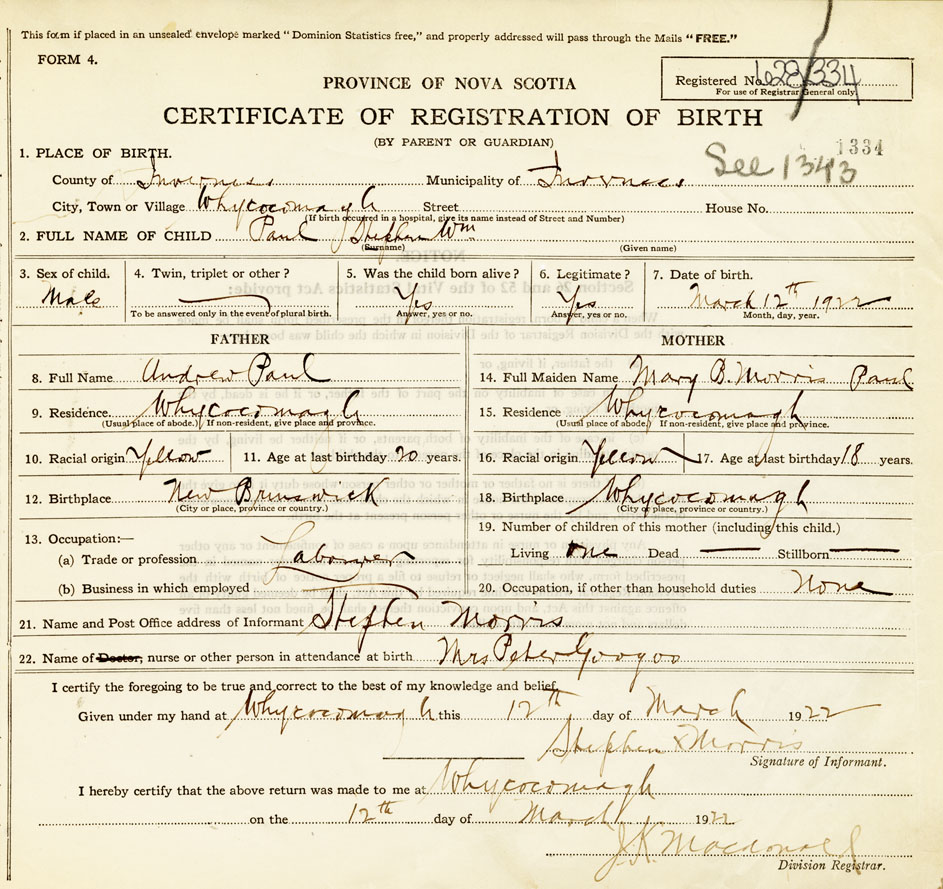 This form if placed in an unsealed envelope marked "Dominion Statistics free," and properly addressed will pass through the Mails "FREE."
FORM 4.
Registered No. 628/334
For use of Registrar General only.
PROVINCE OF NOVA SCOTIA
CERTIFICATE OF REGISTRATION OF BIRTH
(BY PARENT OR GUARDIAN)
1334
See 1343
1. PLACE OF BIRTH.
County of Inverness Municipality of Inverness
City, Town or Village Whycocomagh Street House No.
(If birth occurred in a hospital, give its name instead of Street and Number)
2. FULL NAME OF CHILD Paul Stephen Wm
(Surname) (Given name)
3. Sex of child. 4. Twin, triplet or other? 5. Was the child born alive? 6. Legitimate? 7. Date of birth.
Male Yes Yes March 12th 1922
To be answered only in the event of plural birth. Answer, yes or no. Answer, yes or no. Month, day, year.
FATHER MOTHER
8. Full Name Andrew Paul 14. Full Maiden Name Mary B. Morris Paul
9. Residence Whycocomagh 15. Residence Whycocomagh
(Usual place of abode.) If non-resident, give place and province. (Usual place of abode.) If non-resident, give place and province.
10. Racial origin Yellow 11. Age at last birthday 20 years. 16. Racial origin Yellow 17. Age at last birthday 18 years.
12. Birthplace New Brunswick 18. Birthplace Whycocomagh
(City or place, province or country.) (City or place, province or country.)
13. Occupation:— 19. Number of children of this mother (including this child.)
(a) Trade or profession Laborer Living one Dead Stillborn
(b) Business in which employed 20. Occupation, if other than household duties None
21. Name and Post Office address of Informant Stephen Morris
22. Name of Doctor, nurse or other person in attendance at birth Mrs Peter Googoo
I certify the foregoing to be true and correct to the best of my knowledge and belief.
Given under my hand at Whycocomagh this 12th day of March 1922
Stephen X Morris
Signature of Informant.
I hereby certify that the above return was made to me at Whycocomagh
on the 12th day of March 1922
J. K. Macdonald
Division Registrar.